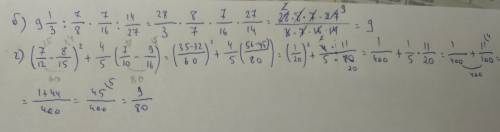 б) 9 1/3 : 7/8 · 7/16 : 14/27 = 28/3 · 8/7 · 7/16 · 27/14 = 28·8·7·27 9/3·7·16·14 = 9
г) (7/12 - 8/15)² + 4/5 (7/10 - 9/16) = (35-32/60)² + 4/5 (56-45/80) = (1/20)² + 4·11/5·80 20 = 1/400 + 1/5 · 11/20 = 1/400 + 11/100 =
60 80 400
= 1+44/400 = 45/400 = 9/80